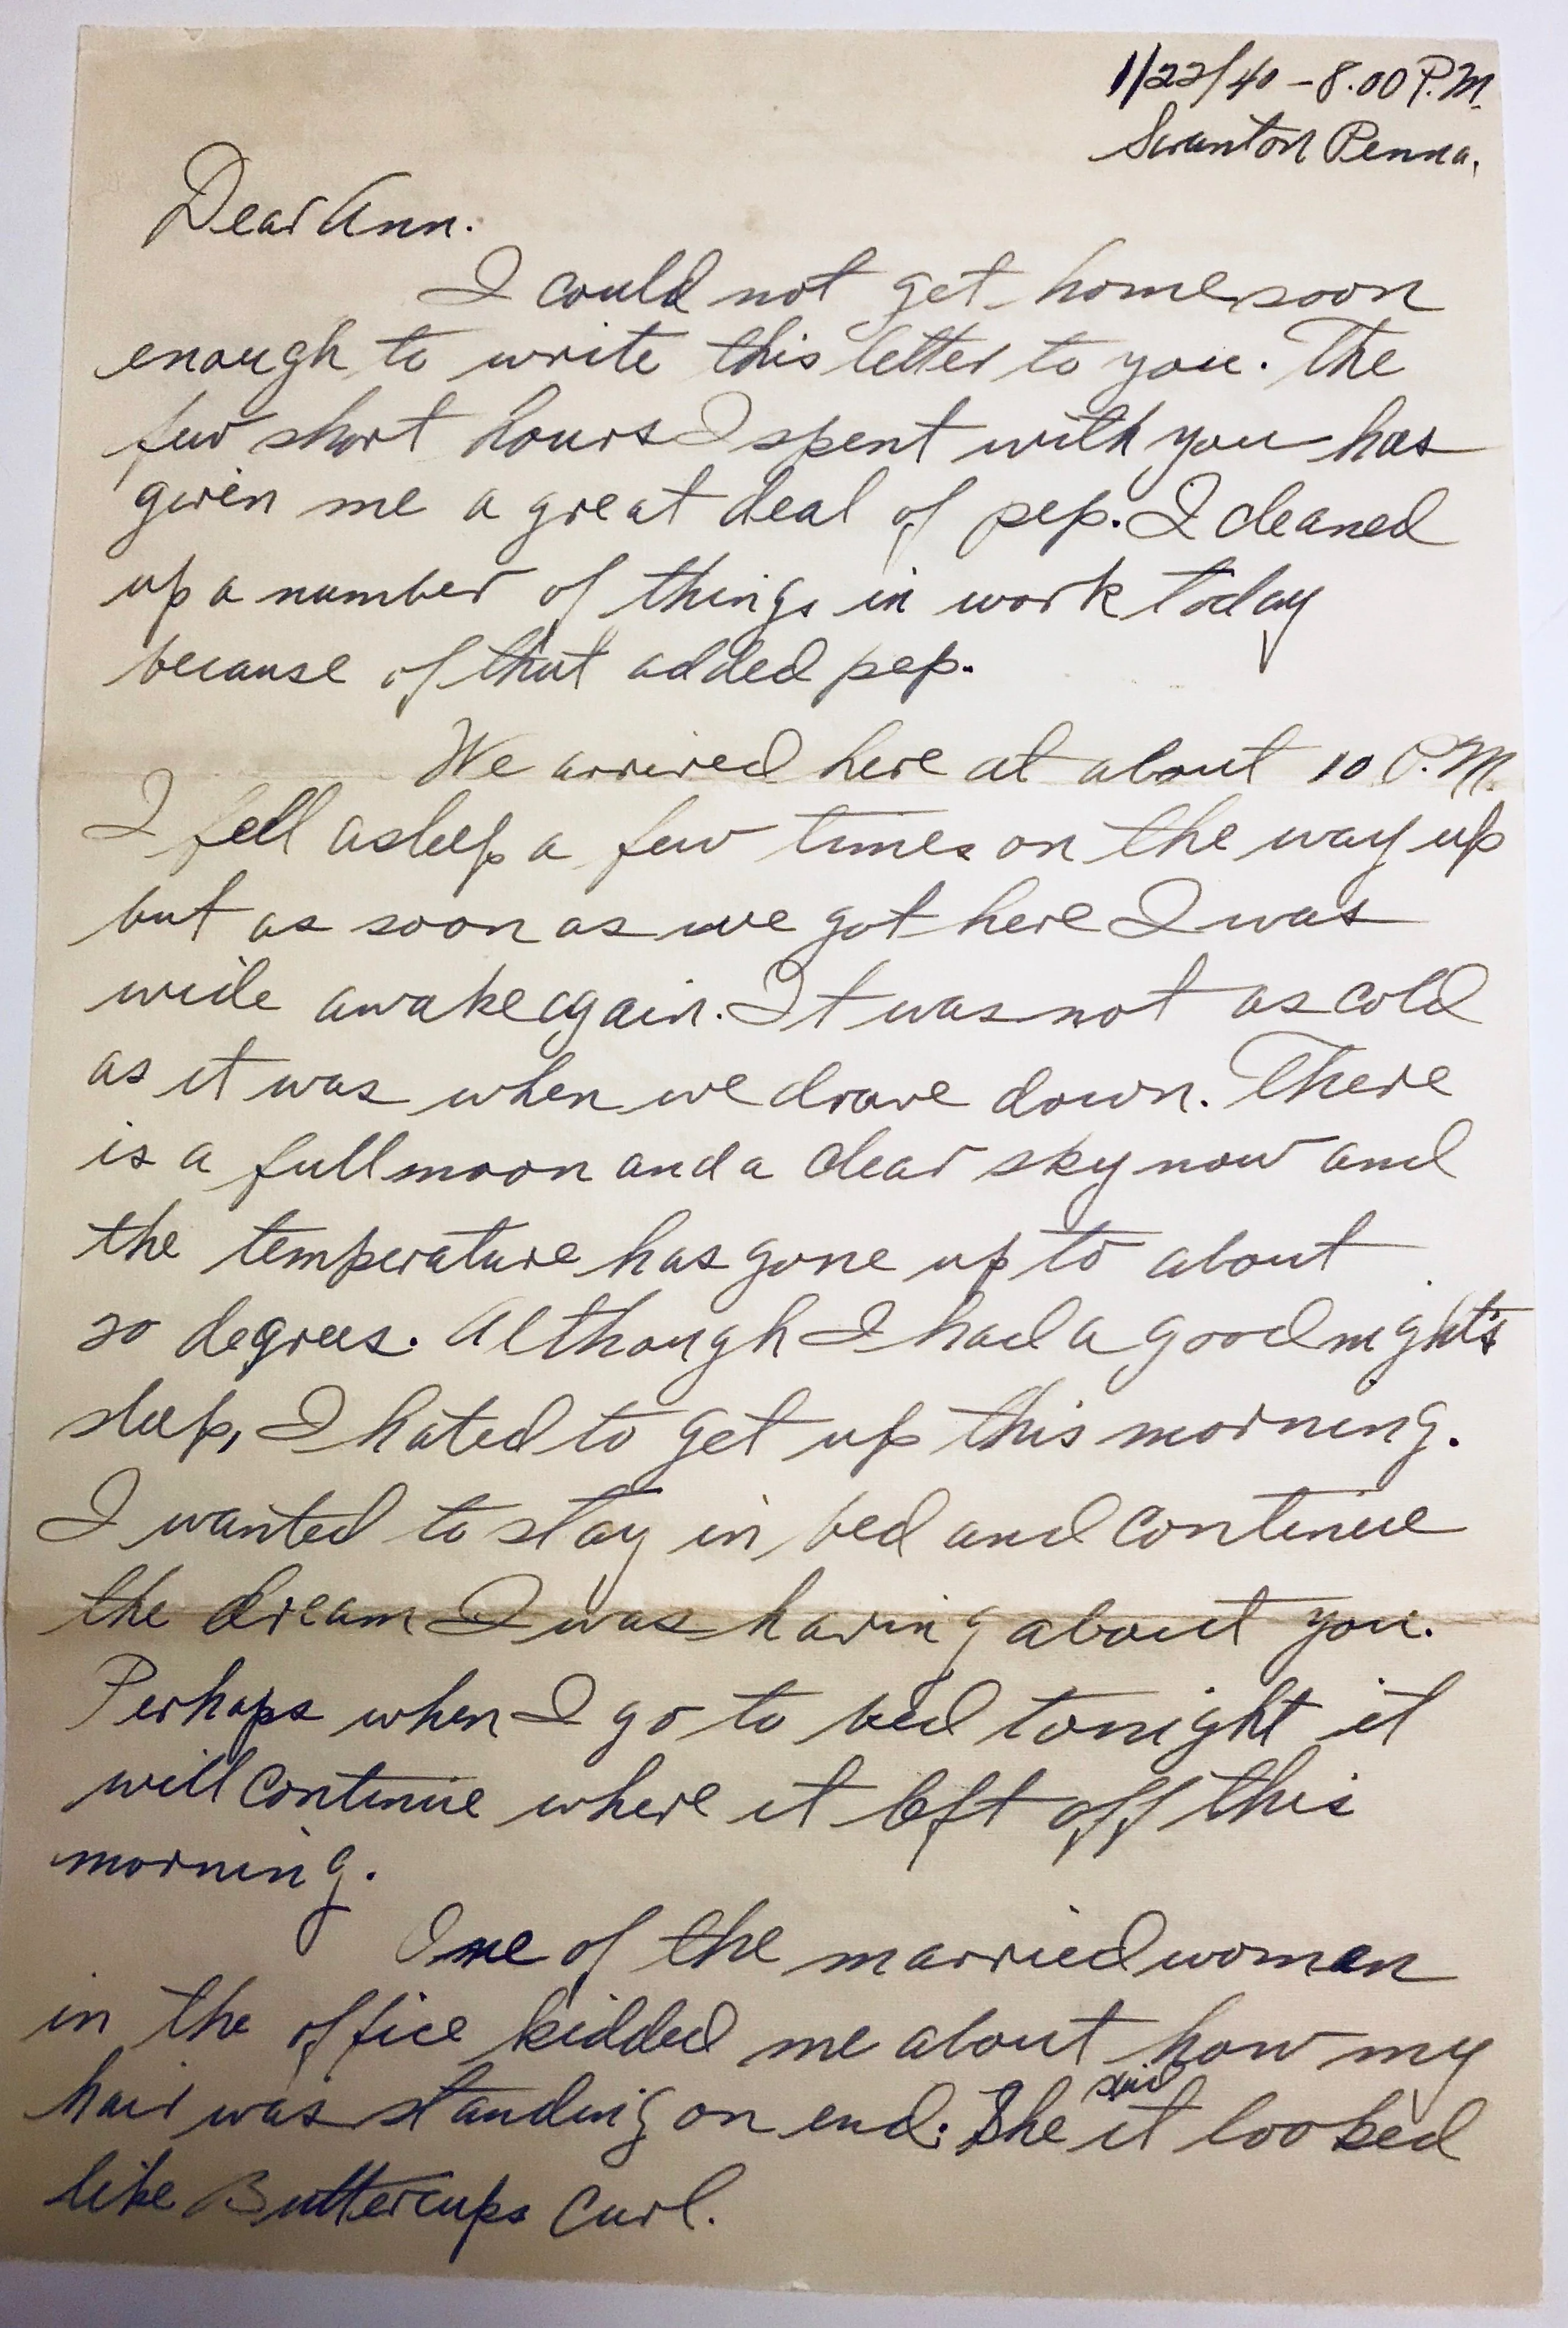 1/22/40 - 8.00 P.M.
Scranton Penna.
Dear Ann.
I could not get home soon
enough to write this letter to you. The
few short hours I spent with you has
given me a great deal of pep. I cleaned
up a number of things in work today
because of that added pep.
We arrived here at about 10 P.M.
I fell asleep a few times on the way up
but as soon as we got here I was
wide awake again. It was not as cold
as it was when we drove down. There
is a full moon and a clear sky now and
the temperature has gone up to about
20 degrees. Although I had a good night's
sleep, I hated to get up this morning.
I wanted to stay in bed and continue
the dream I was having about you.
Perhaps when I go to bed tonight it
will continue where it left off this
morning.
One of the married women
in the office kidded me about how my
hair was standing on end. She said it looked
like Buttercups Curl.